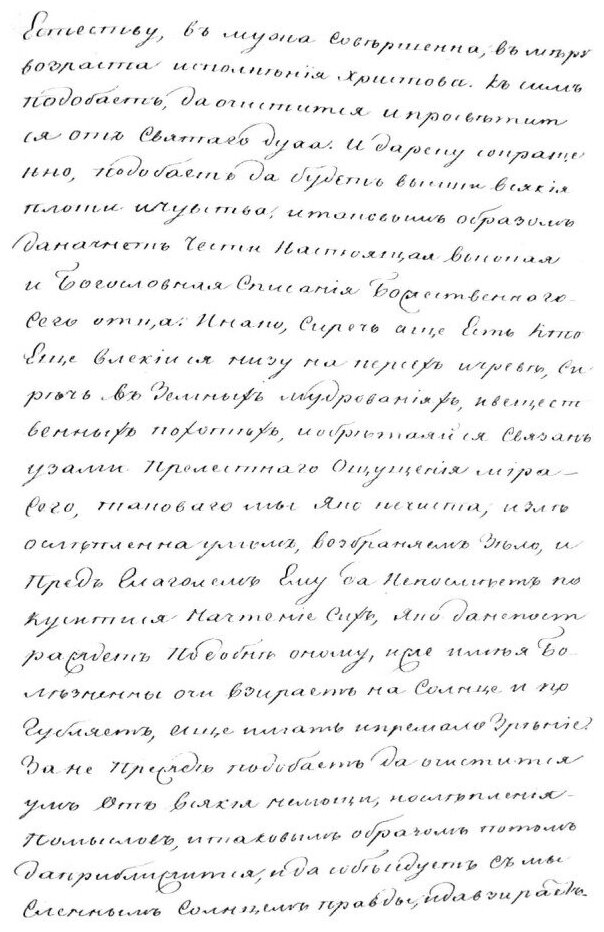 Естеству, въ мужа совѣршенна, въ мѣру
возраста исполнѣнія Христова. Къ симъ
подобаетъ, да очистится и просвѣтит
ся отъ Святаго духа. И дарещу сокраще
нно, подобаетъ да будетъ вышши всякія
плоти и чувства, и таковымъ образомъ
да начнетъ Чести Настоящая высокая
и Богословная Списанія Божественнаго
Сего отца: Инако, Сиречь аще Есть кто
Еще влекійся низу на персехъ и чревѣ, Си
рѣчь въ Земныхъ мудрованіяхъ, и вещест
венныхъ похотѣхъ, и обрѣтаяйся Связанъ
узами Прелестнаго Ощущенія міра
Сего, таковаго мы яко нечиста, и злѣ
ослѣпленна умомъ, возбраняемъ Зѣло, и
Предъ Глаголемъ Ему да Непосмѣетъ по
куситися На чтеніе Сихъ, яко да не пост
раждетъ Подобнѣ оному, иже имѣя Бо
лѣзненны очи взираетъ на Солнце и по
Губляетъ, еще имать и премало Зрѣніе.
Зане Прежде подобаетъ да очистится
умъ Отъ всякія немощи, и ослѣпленія
Помысловъ, и таковымъ образомъ потомъ
да приближится, и да собѣсѣдуетъ съ мы
сленнымъ Солнцемъ правды, и да взираетъ